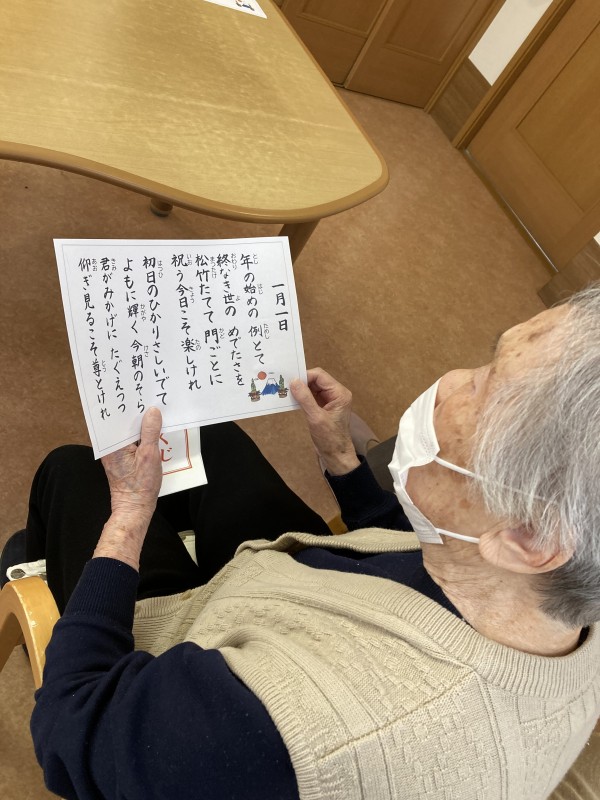 一月一日
年の始めの 例とて
終なき世の めでたさを
松竹たてて 門ごとに
祝う今日こそ 楽しけれ
初日のひかり さしいでて
よもに輝く 今朝のそら
君がみかげに たぐえつつ
仰ぎ見るこそ 尊とけれ
くじ